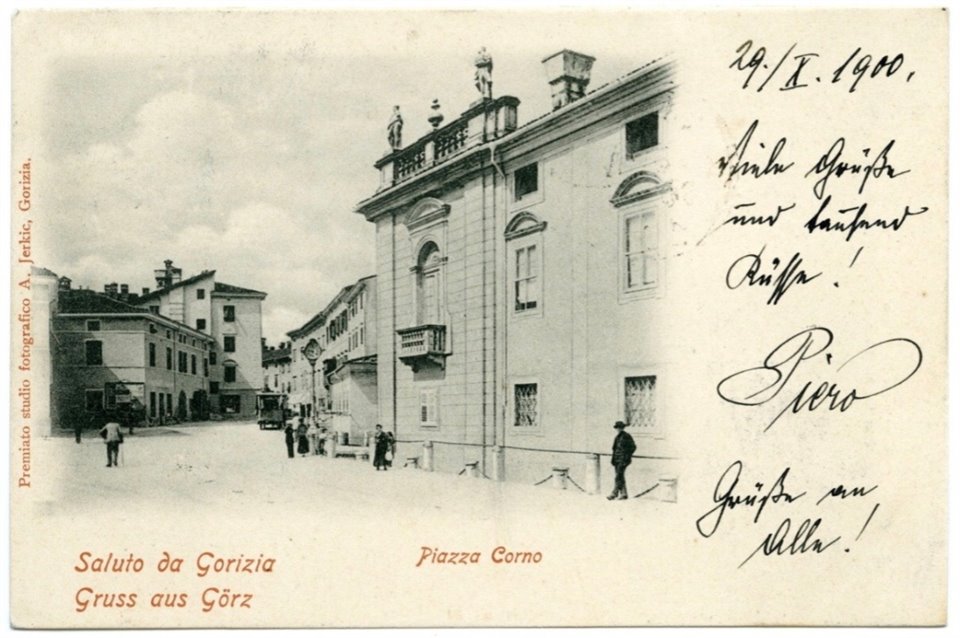 29./X. 1900.
Viele Grüße
und tausend
Küsse!
Piero
Grüße an
Alle!
Premiato studio fotografico A. Jerkic, Gorizia.
Saluto da Gorizia
Gruss aus Görz
Piazza Corno